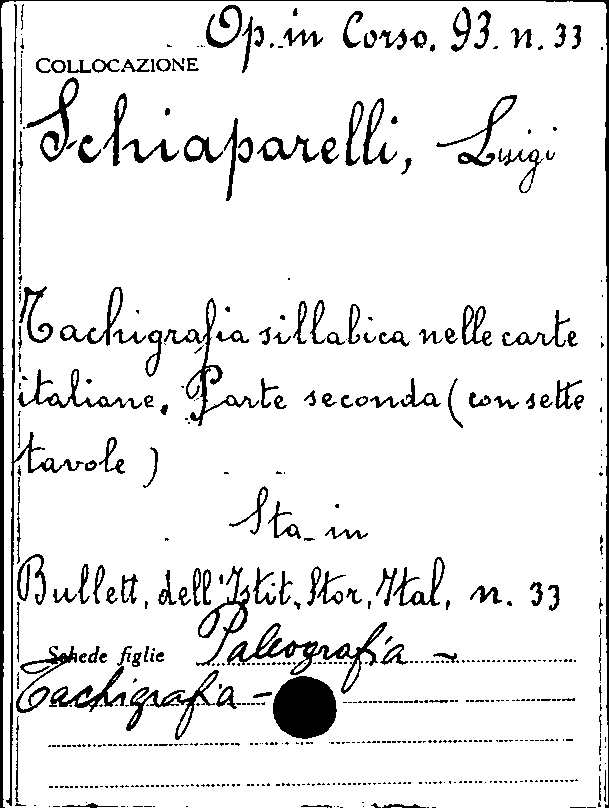 Op. in Corso. 93. n. 33
COLLOCAZIONE
Schiaparelli, Luigi
Tachigrafia sillabica nelle carte
italiane. Parte seconda (con sette
tavole)
Sta in
Bullett. dell'Istit. Stor. Ital. n. 33
Schede figlie Paleografia -
Tachigrafia -